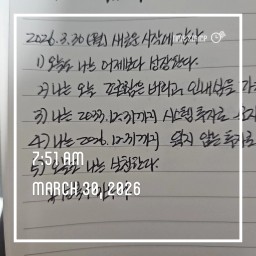 2026.3.30(월) 새로운 시작에
1) 오늘도 나는 어제보다 성장한다.
2) 나는 오늘 조급함은 버리고, 인내심을
3) 나는 2028.12.31까지 시스템 투자로
4) 나는 2026.12.31까지 잃지 않는 투자로
5) 오늘도 나는 성장한다.
7:51 AM
MARCH 30, 2026